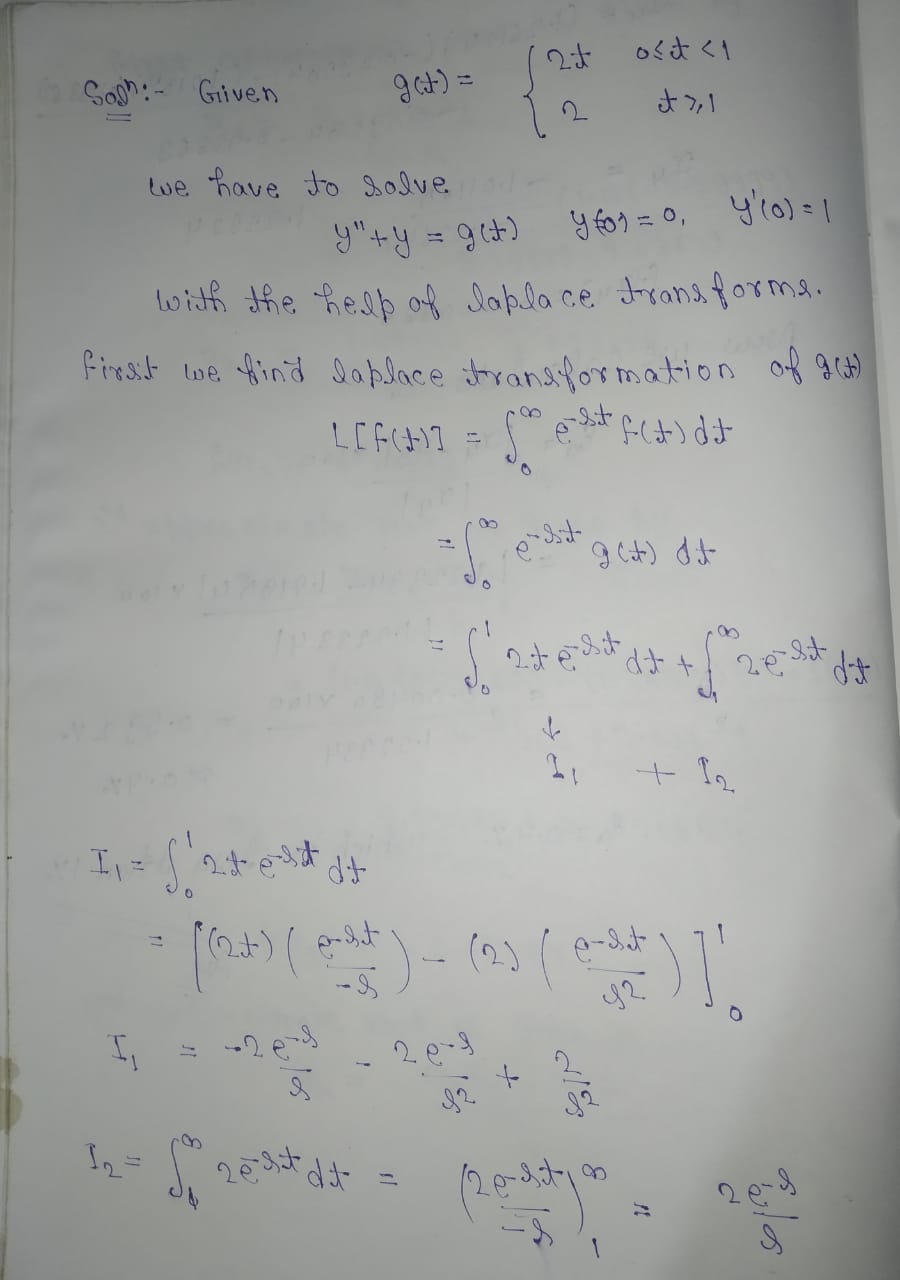 Soln:- Given g(t) = { 2t 0≤t<1
2 t≥1
we have to solve
y"+y = g(t) y(0) = 0, y'(0) = 1
with the help of laplace transforms.
first we find laplace transformation of g(t)
L[f(t)] = ∫₀^∞ e^-st f(t) dt
= ∫₀^∞ e^-st g(t) dt
= ∫₀^1 2t e^-st dt + ∫₁^∞ 2e^-st dt
↓
I₁ + I₂
I₁ = ∫₀^1 2t e^-st dt
= [(2t) (e^-st/-s) - (2) (e^-st/s²)]₀^1
I₁ = -2e^-s/s - 2e^-s/s² + 2/s²
I₂ = ∫₁^∞ 2e^-st dt = (2e^-st/-s)₁^∞ = 2e^-s/s